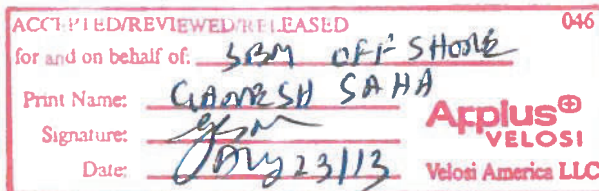 ACCEPTED/REVIEWED/RELEASED 046
for and on behalf of: SBM OFFSHORE
Print Name: GANESH SAHA
Signature:
Applus⊕
VELOSI
Date: 23/13 Velosi America LLC